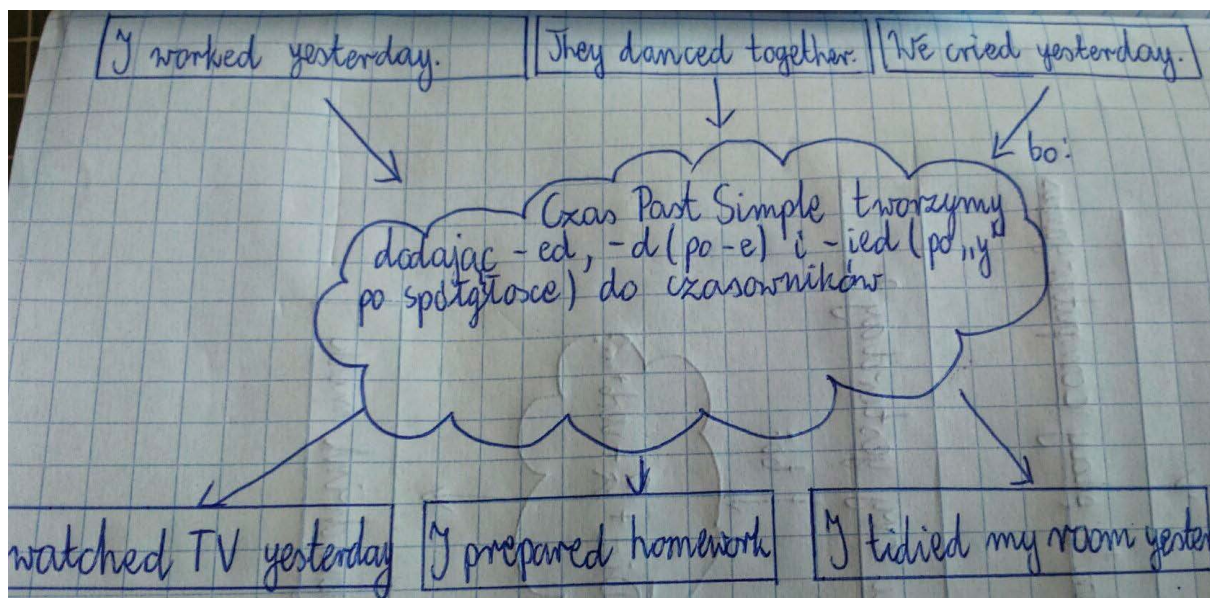 I worked yesterday.
They danced together.
We cried yesterday.
bo:
Czas Past Simple tworzymy
dodając -ed, -d (po -e) i -ied (po „y"
po spółgłosce) do czasowników
watched TV yesterday
I prepared homework
I tidied my room yester